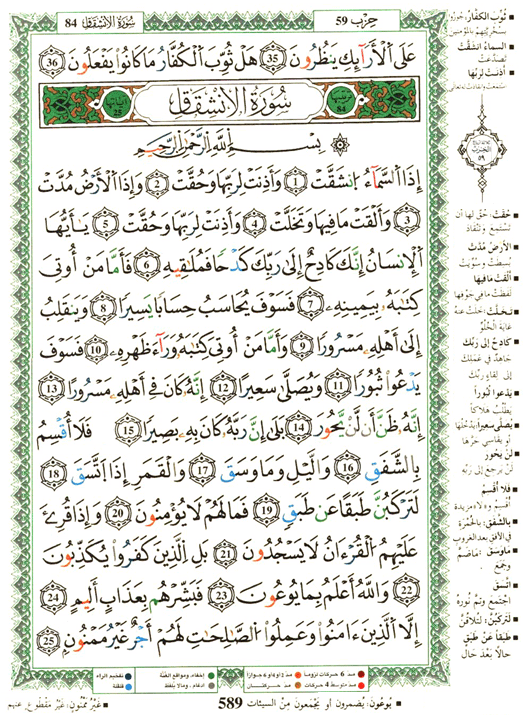 84 سُورَةُ الانشِقَاق
حِزب 59
عَلَى ٱلْأَرَآئِكِ يَنظُرُونَ 35 هَلْ ثُوِّبَ ٱلْكُفَّارُ مَا كَانُوا۟ يَفْعَلُونَ 36
آيَاتُهَا 25 سُورَةُ الانشِقَاق تَرْتِيبُهَا 84
بِسْمِ ٱللَّهِ ٱلرَّحْمَٰنِ ٱلرَّحِيمِ
إِذَا ٱلسَّمَآءُ ٱنشَقَّتْ 1 وَأَذِنَتْ لِرَبِّهَا وَحُقَّتْ 2 وَإِذَا ٱلْأَرْضُ مُدَّتْ
3 وَأَلْقَتْ مَا فِيهَا وَتَخَلَّتْ 4 وَأَذِنَتْ لِرَبِّهَا وَحُقَّتْ 5 يَٰٓأَيُّهَا
ٱلْإِنسَٰنُ إِنَّكَ كَادِحٌ إِلَىٰ رَبِّكَ كَدْحًا فَمُلَٰقِيهِ 6 فَأَمَّا مَنْ أُوتِىَ
كِتَٰبَهُۥ بِيَمِينِهِۦ 7 فَسَوْفَ يُحَاسَبُ حِسَابًا يَسِيرًا 8 وَيَنقَلِبُ
إِلَىٰٓ أَهْلِهِۦ مَسْرُورًا 9 وَأَمَّا مَنْ أُوتِىَ كِتَٰبَهُۥ وَرَآءَ ظَهْرِهِۦ 10 فَسَوْفَ
يَدْعُوا۟ ثُبُورًا 11 وَيَصْلَىٰ سَعِيرًا 12 إِنَّهُۥ كَانَ فِىٓ أَهْلِهِۦ مَسْرُورًا 13
إِنَّهُۥ ظَنَّ أَن لَّن يَحُورَ 14 بَلَىٰٓ إِنَّ رَبَّهُۥ كَانَ بِهِۦ بَصِيرًا 15 فَلَآ أُقْسِمُ
بِٱلشَّفَقِ 16 وَٱلَّيْلِ وَمَا وَسَقَ 17 وَٱلْقَمَرِ إِذَا ٱتَّسَقَ 18
لَتَرْكَبُنَّ طَبَقًا عَن طَبَقٍ 19 فَمَا لَهُمْ لَا يُؤْمِنُونَ 20 وَإِذَا قُرِئَ
عَلَيْهِمُ ٱلْقُرْءَانُ لَا يَسْجُدُونَ 21 بَلِ ٱلَّذِينَ كَفَرُوا۟ يُكَذِّبُونَ
22 وَٱللَّهُ أَعْلَمُ بِمَا يُوعُونَ 23 فَبَشِّرْهُم بِعَذَابٍ أَلِيمٍ 24
إِلَّا ٱلَّذِينَ ءَامَنُوا۟ وَعَمِلُوا۟ ٱلصَّٰلِحَٰتِ لَهُمْ أَجْرٌ غَيْرُ مَمْنُونٍۭ 25
ثُوِّبَ الكفّارُ
السماءُ انشقّتْ
أذِنَتْ لربِّها
حُقّتْ: حُقَّ لها أن تستمع وتنقاد
الأرضُ مُدَّتْ
ألقتْ ما فيها
لفظتْ ما في جوفها
تخلّتْ: خلتْ عنه غاية الخُلوِّ
كادحٌ إلى ربّك
جاهدٌ في عملك إلى لقاءِ ربّك
يدعوا ثبورًا
يطلبُ هلاكًا
يصلى سعيرًا: يدخلها أو يقاسي حرَّها
لن يحور
لن يرجع إلى ربّه
فلا أقسم
أقسم و«لا» مزيدة
بالشفق: بالحُمْرة في الأفق بعد الغروب
ما وسق: ما ضمّ وجمع
اتّسق
اجتمع وتمَّ نوره
لتركبُنَّ: لتلاقُنَّ
طبقًا عن طبق
حالًا بعد حال
مدّ 6 حركات لزوماً
مدّ 2 أو 4 أو 6 جوازاً
مدّ متوسط 4 حركات
مدّ حركتان
إخفاء، ومواقع الغُنَّة
إدغام، وما لا يُلفَظ
تفخيم الراء
قلقلة
يوعُون: يضمرون أو يجمعون مِنَ السيئات
589
غَيْرُ مَمْنُونٍ: غَيْرُ مقطُوع عنهم